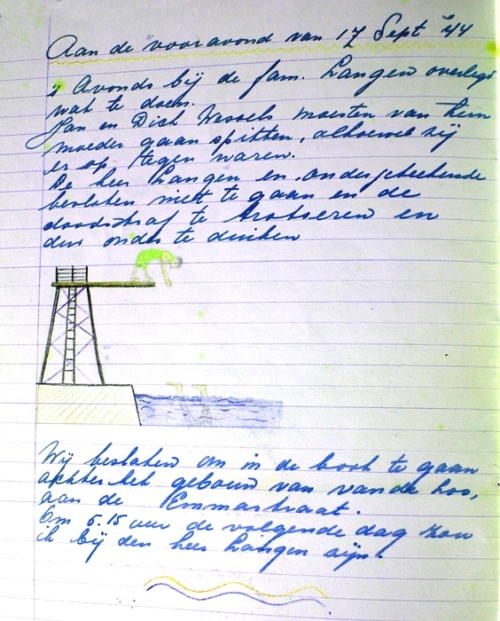 Aan de vooravond van 17 Sept '44
's Avonds bij de fam. Langen overlegt
wat te doen.
Jan en Dick Wessels moesten van hun
moeder gaan spitten, alhoewel zij
er op tegen waren.
De heer Langen en ondergeteekende
besloten niet te gaan en de
doodstraf te trotseren en
dus onder te duiken
Wij besloten om in de boot te gaan
achter het gebouw van van de Loo,
aan de Emmastraat.
Om 5.15 uur de volgende dag zou
ik bij den heer Langen zijn.